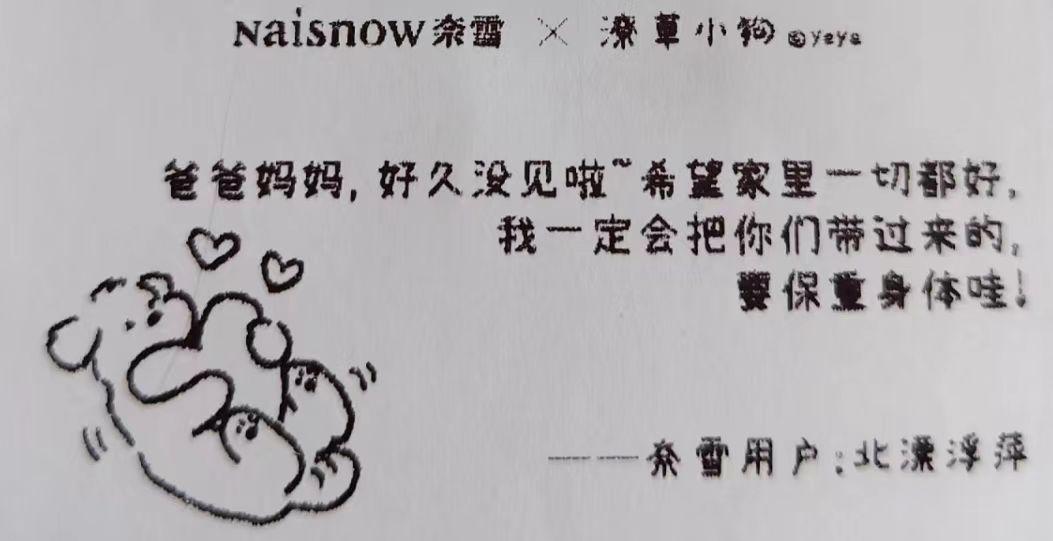 Naisnow奈雪 × 潦草小狗 ©yeye
爸爸妈妈,好久没见啦~希望家里一切都好,
我一定会把你们带过来的,
要保重身体哇!
——奈雪用户:北漂浮萍